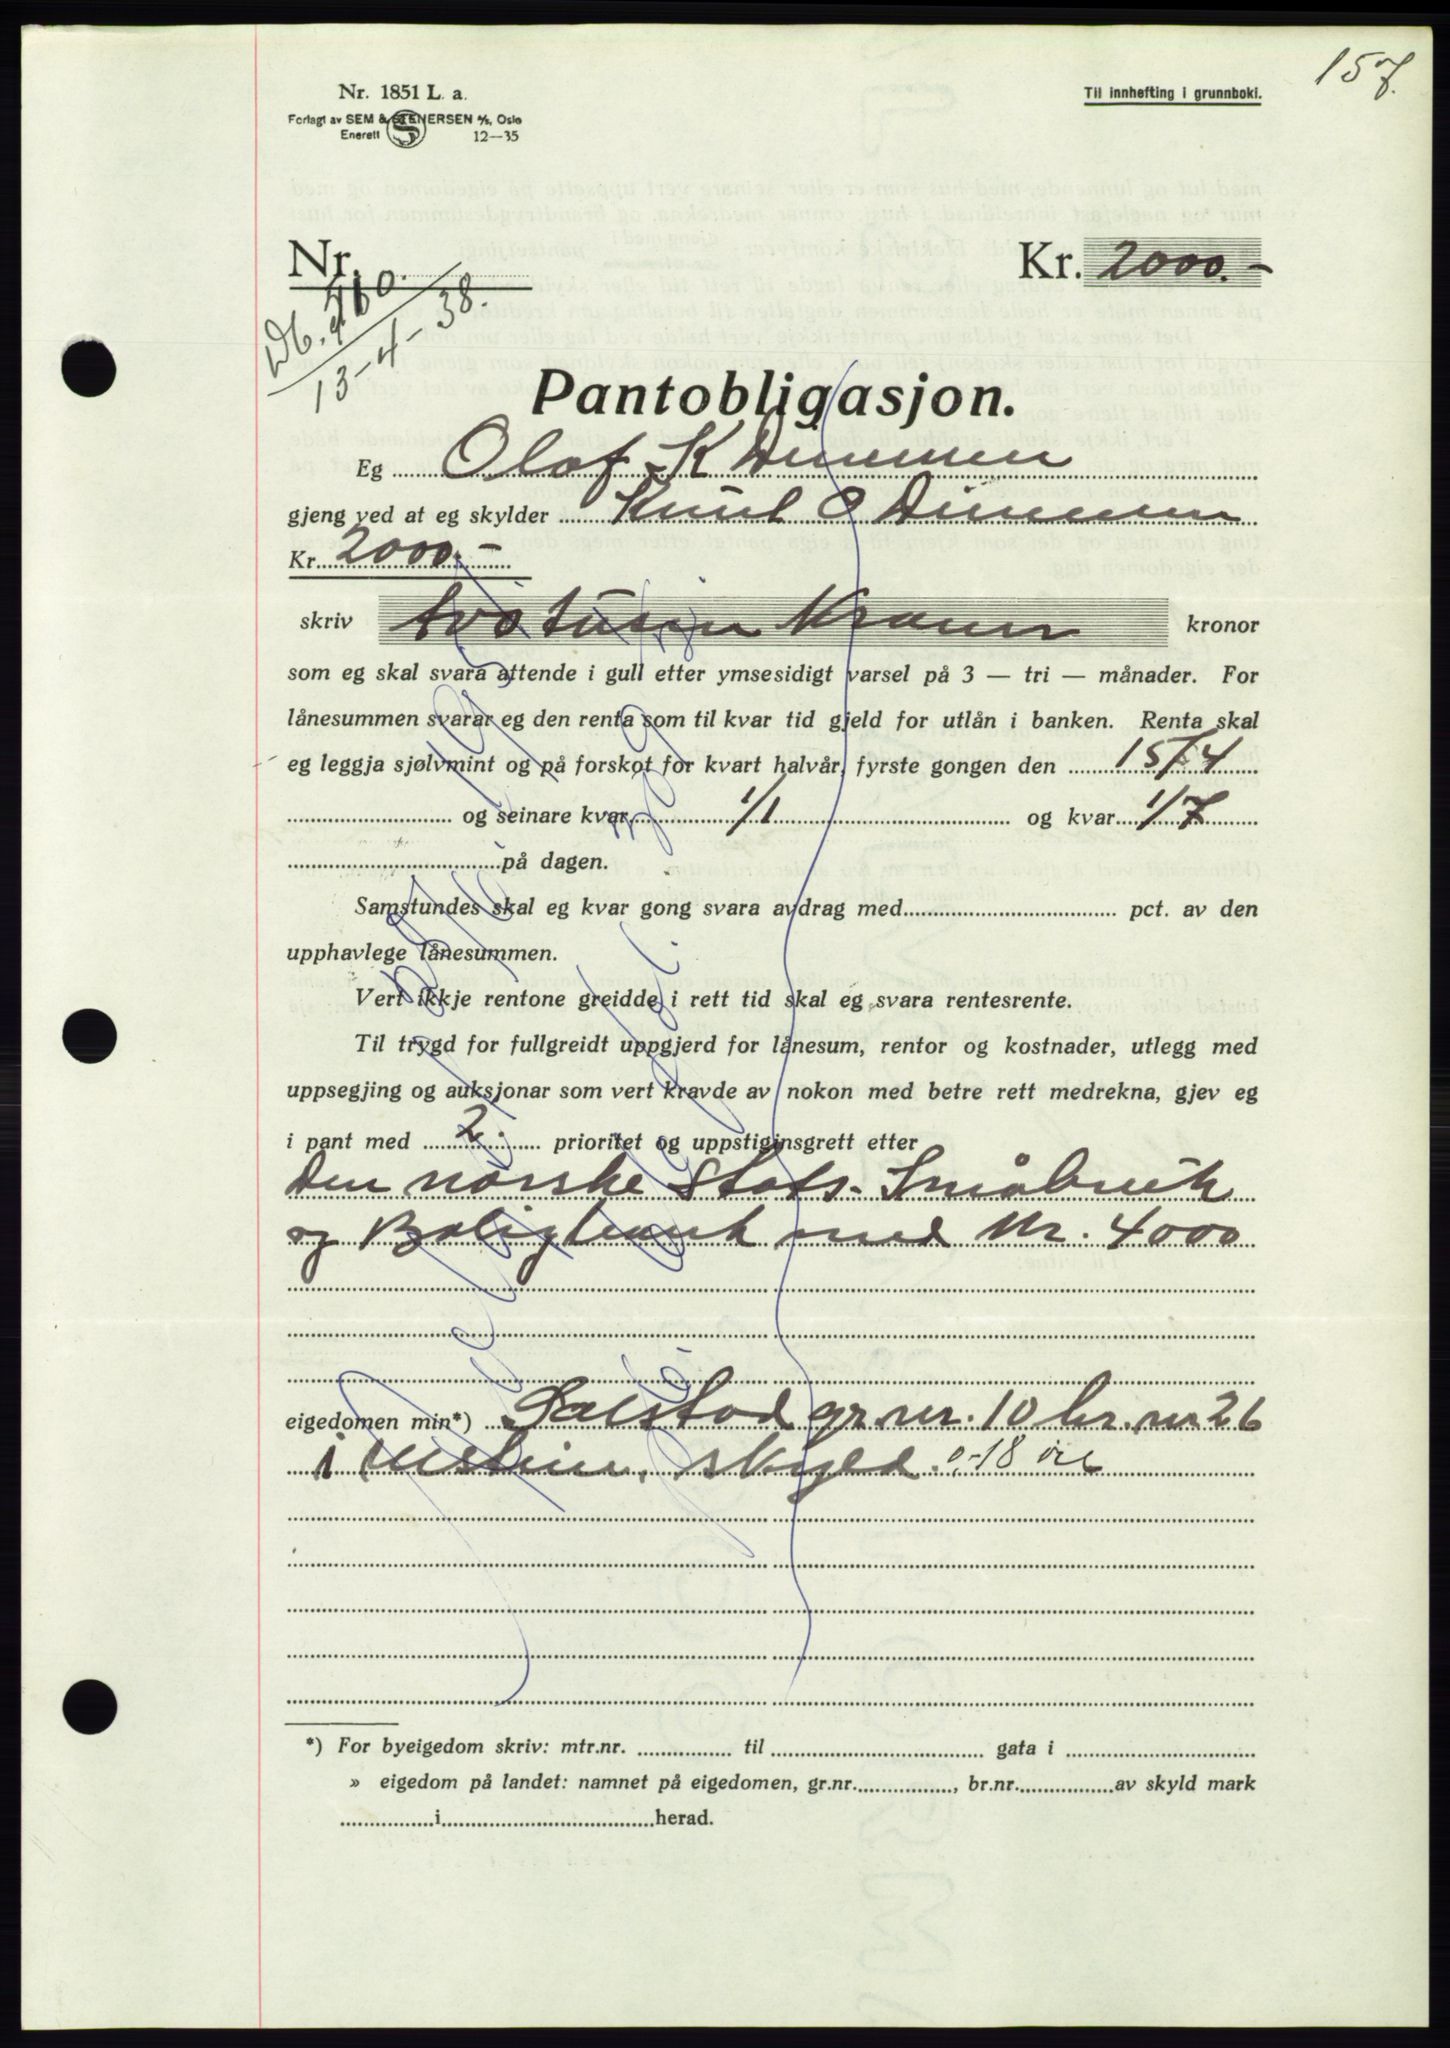 157.
Nr. 1851 L. a.
Til innhefting i grunnboki.
Forlagt av SEM & STENERSEN A/S, Oslo
Enerett 12—35
Nr.
Kr. 2000.-
Db. 460.
13-4-38.
Pantobligasjon.
Eg Olaf K Dimmen
gjeng ved at eg skylder Knut O Dimmen
Kr. 2000.-
skriv to tusin Kroner kronor
som eg skal svara attende i gull etter ymsesidigt varsel på 3 — tri — månader. For
lånesummen svarar eg den renta som til kvar tid gjeld for utlån i banken. Renta skal
eg leggja sjølvmint og på forskot for kvart halvår, fyrste gongen den 15/4
og seinare kvar 1/1 og kvar 1/7
på dagen.
Samstundes skal eg kvar gong svara avdrag med pct. av den
upphavlege lånesummen.
Vert ikkje rentone greidde i rett tid skal eg svara rentesrente.
Til trygd for fullgreidt uppgjerd for lånesum, rentor og kostnader, utlegg med
uppsegjing og auksjonar som vert kravde av nokon med betre rett medrekna, gjev eg
i pant med 2. prioritet og uppstiginsgrett etter
Den norske Stats- Småbruk
og Boligbank med Kr. 4000
eigedomen min*) Solstad gr.nr. 10 br. nr 26
i skyld 0-18 øre
*) For byeigedom skriv: mtr.nr. til gata i
» eigedom på landet: namnet på eigedomen, gr.nr. , br.nr. av skyld mark
i herad.